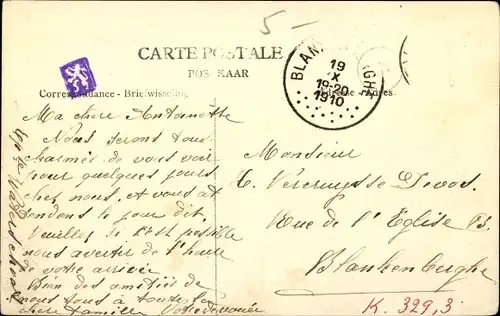 5-
CARTE POSTALE
POSTKAART
Correspondance - Briefwisseling
Adres.
BLANKENBERGHE
19
X
19-20
1910
Ma chère Antoinette
Nous serons tous
charmés de vous voir
pour quelques jours
chez nous, et vous at
tendons le jour dit.
Veuillez si c'est possible
nous avertir de l'heure
de votre arrivée
Bien des amitiés de
nous tous à toute la
chère famille
Monsieur
Vercruysse Devos
Rue de l'Eglise
Blankenberghe
K. 329,3